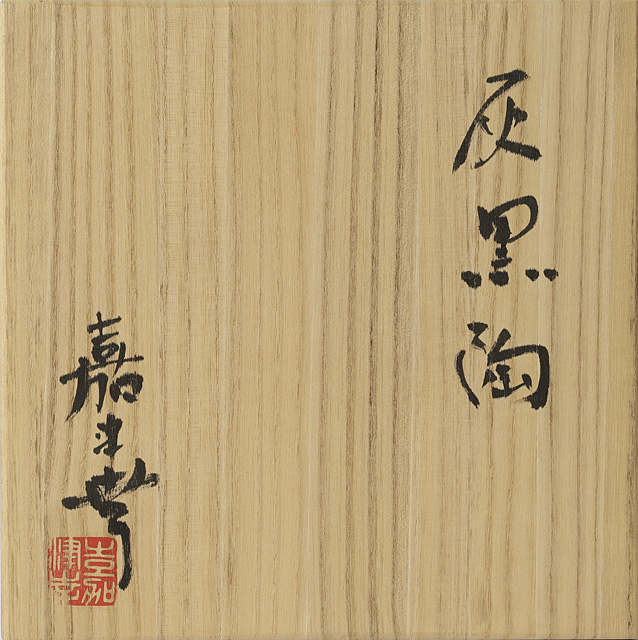 灰黒陶
嘉津孝